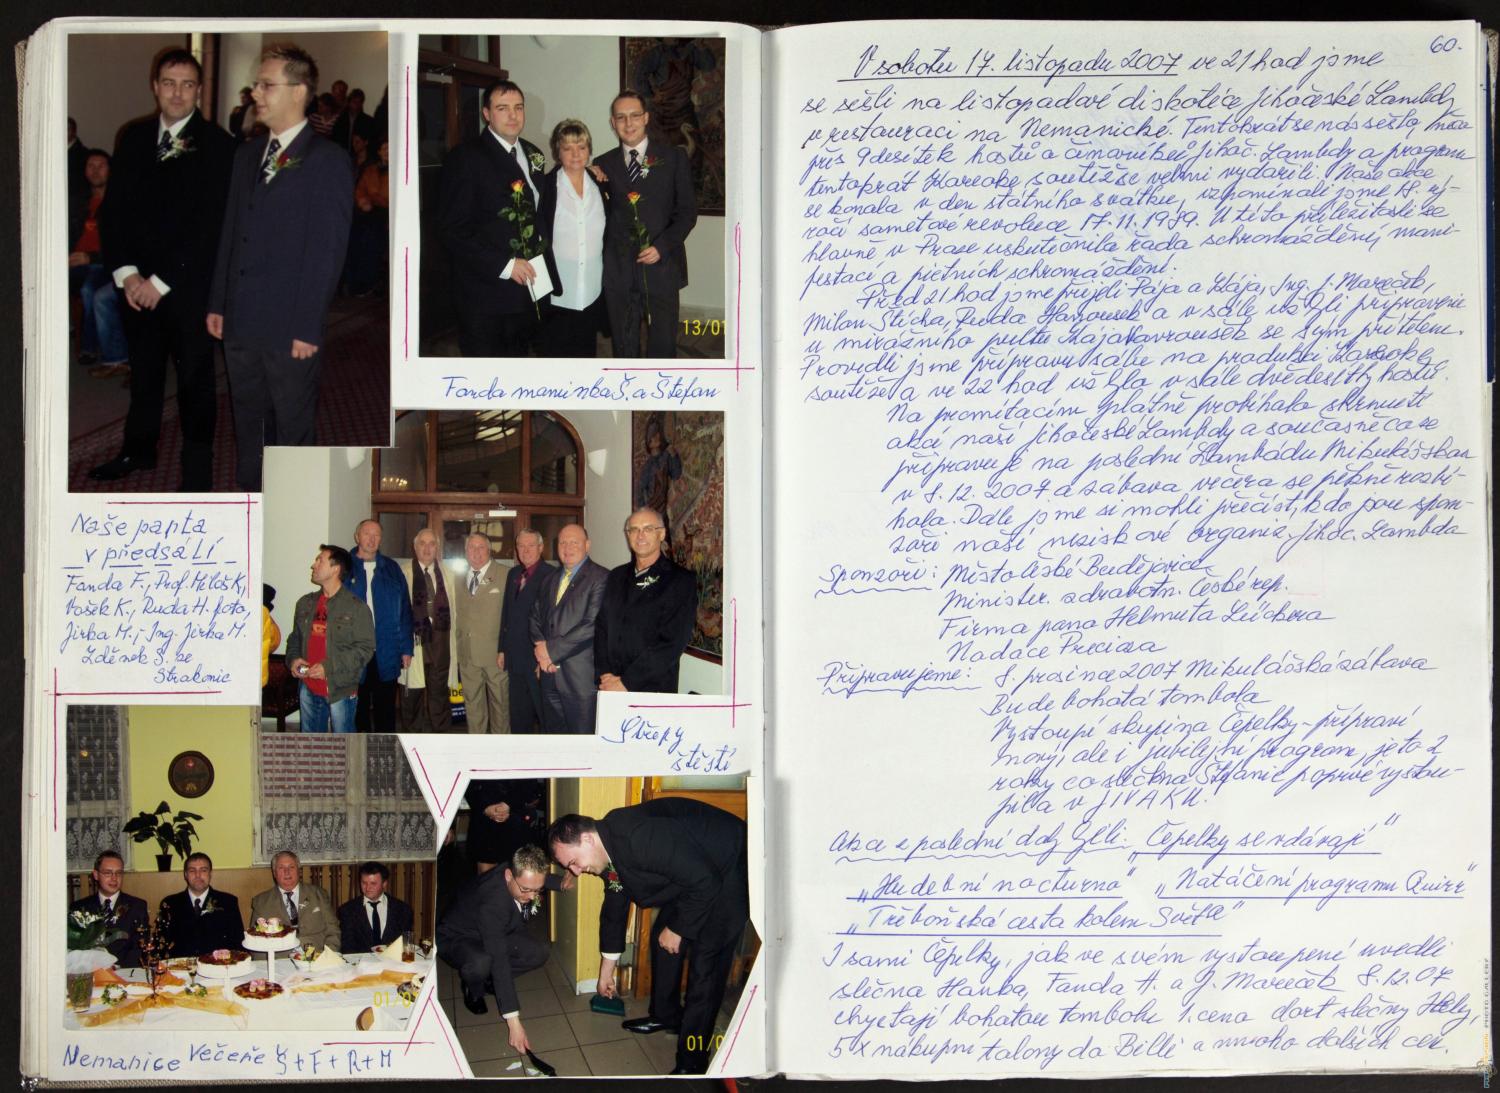 13/01
Fanda maminka Š. a Štefan
Naše parta
v předsálí
Fanda F., Prof. Miloš K,
Vašek K., Ruda H. foto,
Jirka M., Ing. Jirka M.
Zdeněk S. ze
Strakonic
Střepy
štěstí
01/0
01/0
Nemanice Večeře Š+F+R+M
60.
V sobotu 17. listopadu 2007 ve 21 hod jsme
se sešli na listopadové diskotéce Jihočeské Lambdy
v restauraci na Nemanické. Tentokrát se nás sešlo
přes 9 desítek hostů a činovníků Jihoč. Lambdy a program
tentokrát Kareoke soutěž se velmi vydařili. Naše akce
se konala v den státního svátku, vzpomínali jsme 18. vý-
ročí sametové revoluce 17.11.1989. U této příležitosti se
hlavně v Praze uskutečnila řada schromáždění, mani-
festací a pietních schromáždění.
Před 21 hod jsme přijeli Pája a Kája, Ing. J. Mareček,
Milan Šticha, Ruda Hanousek a v sále už byli připraveni
u mixážního pultu Kája Vavroušek se svým přítelem.
Provedli jsme přípravu sálu na produkci Kareoke
soutěže a ve 22 hod už bylo v sále dvě desítky hostů.
Na promítacím plátně probíhalo shrnutí
akcí naší Jihočeské Lambdy a současně co se
připravuje na poslední Lambádu Mikulášskou
v 8.12.2007 a zábava večera se pěkně rozbí-
hala. Dále jsme si mohli přečíst, kdo jsou spon-
zoři naší neziskové organiz. Jihoč. Lambda
Sponzoři: Město České Budějovice
Minister. zdravotn. České rep.
Firma pana Helmuta
Nadace Preciosa
Připravujeme: 8. prosince 2007 Mikulášská zábava
Bude bohatá tombola
Vystoupí skupina Čepelky - připraví
nový, ale i jubilejní program, je to 2
roky co slečna Štefanie poprvé vystou-
pila v JIVAKU.
Akce z poslední doby byli: „Čepelky se vdávají"
„Hudební nocturno" „Natáčení programu Quirr"
„Třeboňská cesta kolem Světa"
I sami Čepelky, jak ve svém vystoupení uvedli
slečna Hanka, Fanda H. a J. Mareček 8.12.07
chystají bohatou tombolu 1. cena dort slečny Hely,
5 x nákupní talony do Billi a mnoho dalších cen.